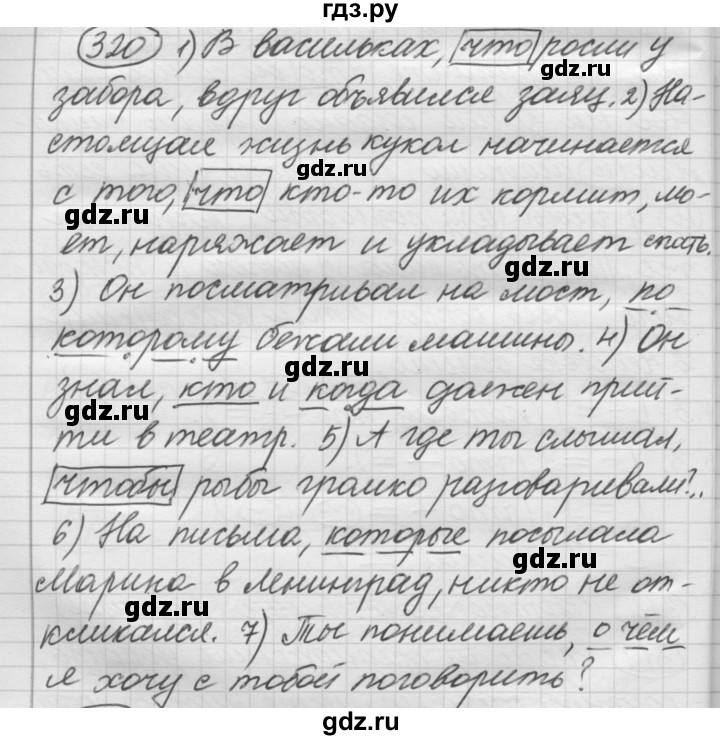 гдз.ру
320 1) В васильках, что росли у
gdz.ru
забора, вдруг объявился заяц. 2) На-
стоящая жизнь кукол начинается
gdz.ru
с того, что кто-то их кормит, мо-
gdz.ru
ет, наряжает и укладывает спать.
gdz.ru
3) Он посматривал на мост, по
которому бежали машины. 4) Он
gdz.ru
знал, кто и когда должен прий-
gdz.ru
ти в театр. 5) А где ты слышал,
gdz.ru
чтобы рыбы громко разговаривали?..
6) На письма, которые посылала
gdz.ru
Марина в Ленинград, никто не от-
gdz.ru
кликался. 7) Ты понимаешь, о чём
gdz.ru
я хочу с тобой поговорить?
gdz.ru